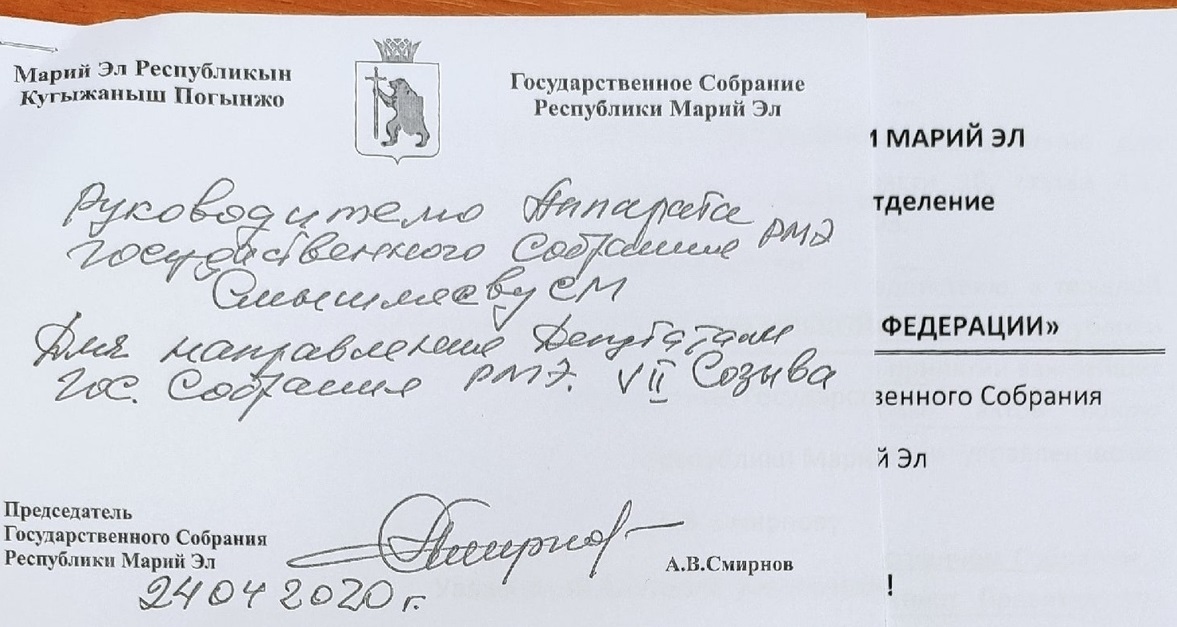 Марий Эл Республикын
Кугыжаныш Погынжо
Государственное Собрание
Республики Марий Эл
Руководителю Аппарата
государственного Собрания РМЭ
Смышляеву СМ
Для направления Депутатам
Гос. Собрания РМЭ. VII Созыва
Председатель
Государственного Собрания
Республики Марий Эл
А.В.Смирнов
24 04 2020 г.
И МАРИЙ ЭЛ
тделение
ФЕДЕРАЦИИ»
венного Собрания
й Эл
!